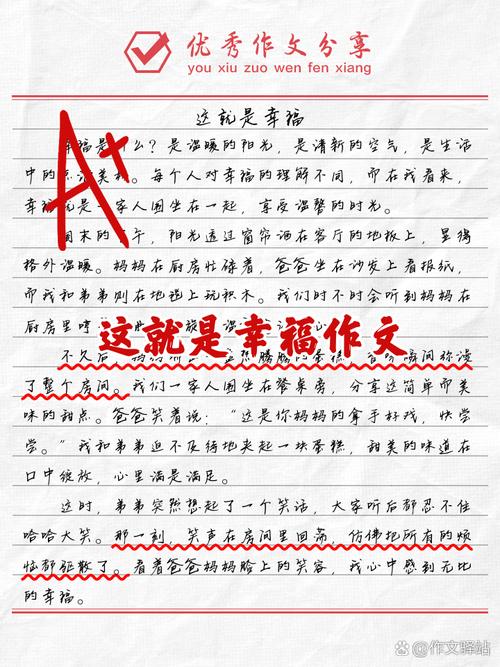 优秀作文分享
you xiu zuo wen fen xiang
这就是幸福
幸福是什么？是温暖的阳光，是清新的空气，是生活
中的点滴美好。每个人对幸福的理解不同，而在我看来，
幸福就是一家人围坐在一起，享受温馨的时光。
周末的下午，阳光透过窗帘洒在客厅的地板上，显得
格外温暖。妈妈在厨房忙碌着，爸爸坐在沙发上看报纸，
而我和弟弟则在地毯上玩积木。我们时不时会听到妈妈在
厨房里哼
这就是幸福作文
不久后，妈妈
腾腾的蛋糕，香味瞬间弥漫
了整个房间。我们一家人围坐在餐桌旁，分享这简单而美
味的甜点。爸爸笑着说：“这是你妈妈的拿手好戏，快尝
尝。”我和弟弟迫不及待地夹起一块蛋糕，甜美的味道在
口中绽放，心里满是满足。
这时，弟弟突然想起了一个笑话，大家听后都忍不住
哈哈大笑。那一刻，笑声在房间里回荡，仿佛把所有的烦
恼都驱散了。看着爸爸妈妈脸上的笑容，我心中感到无比
的幸福。
A+
@作文驿站